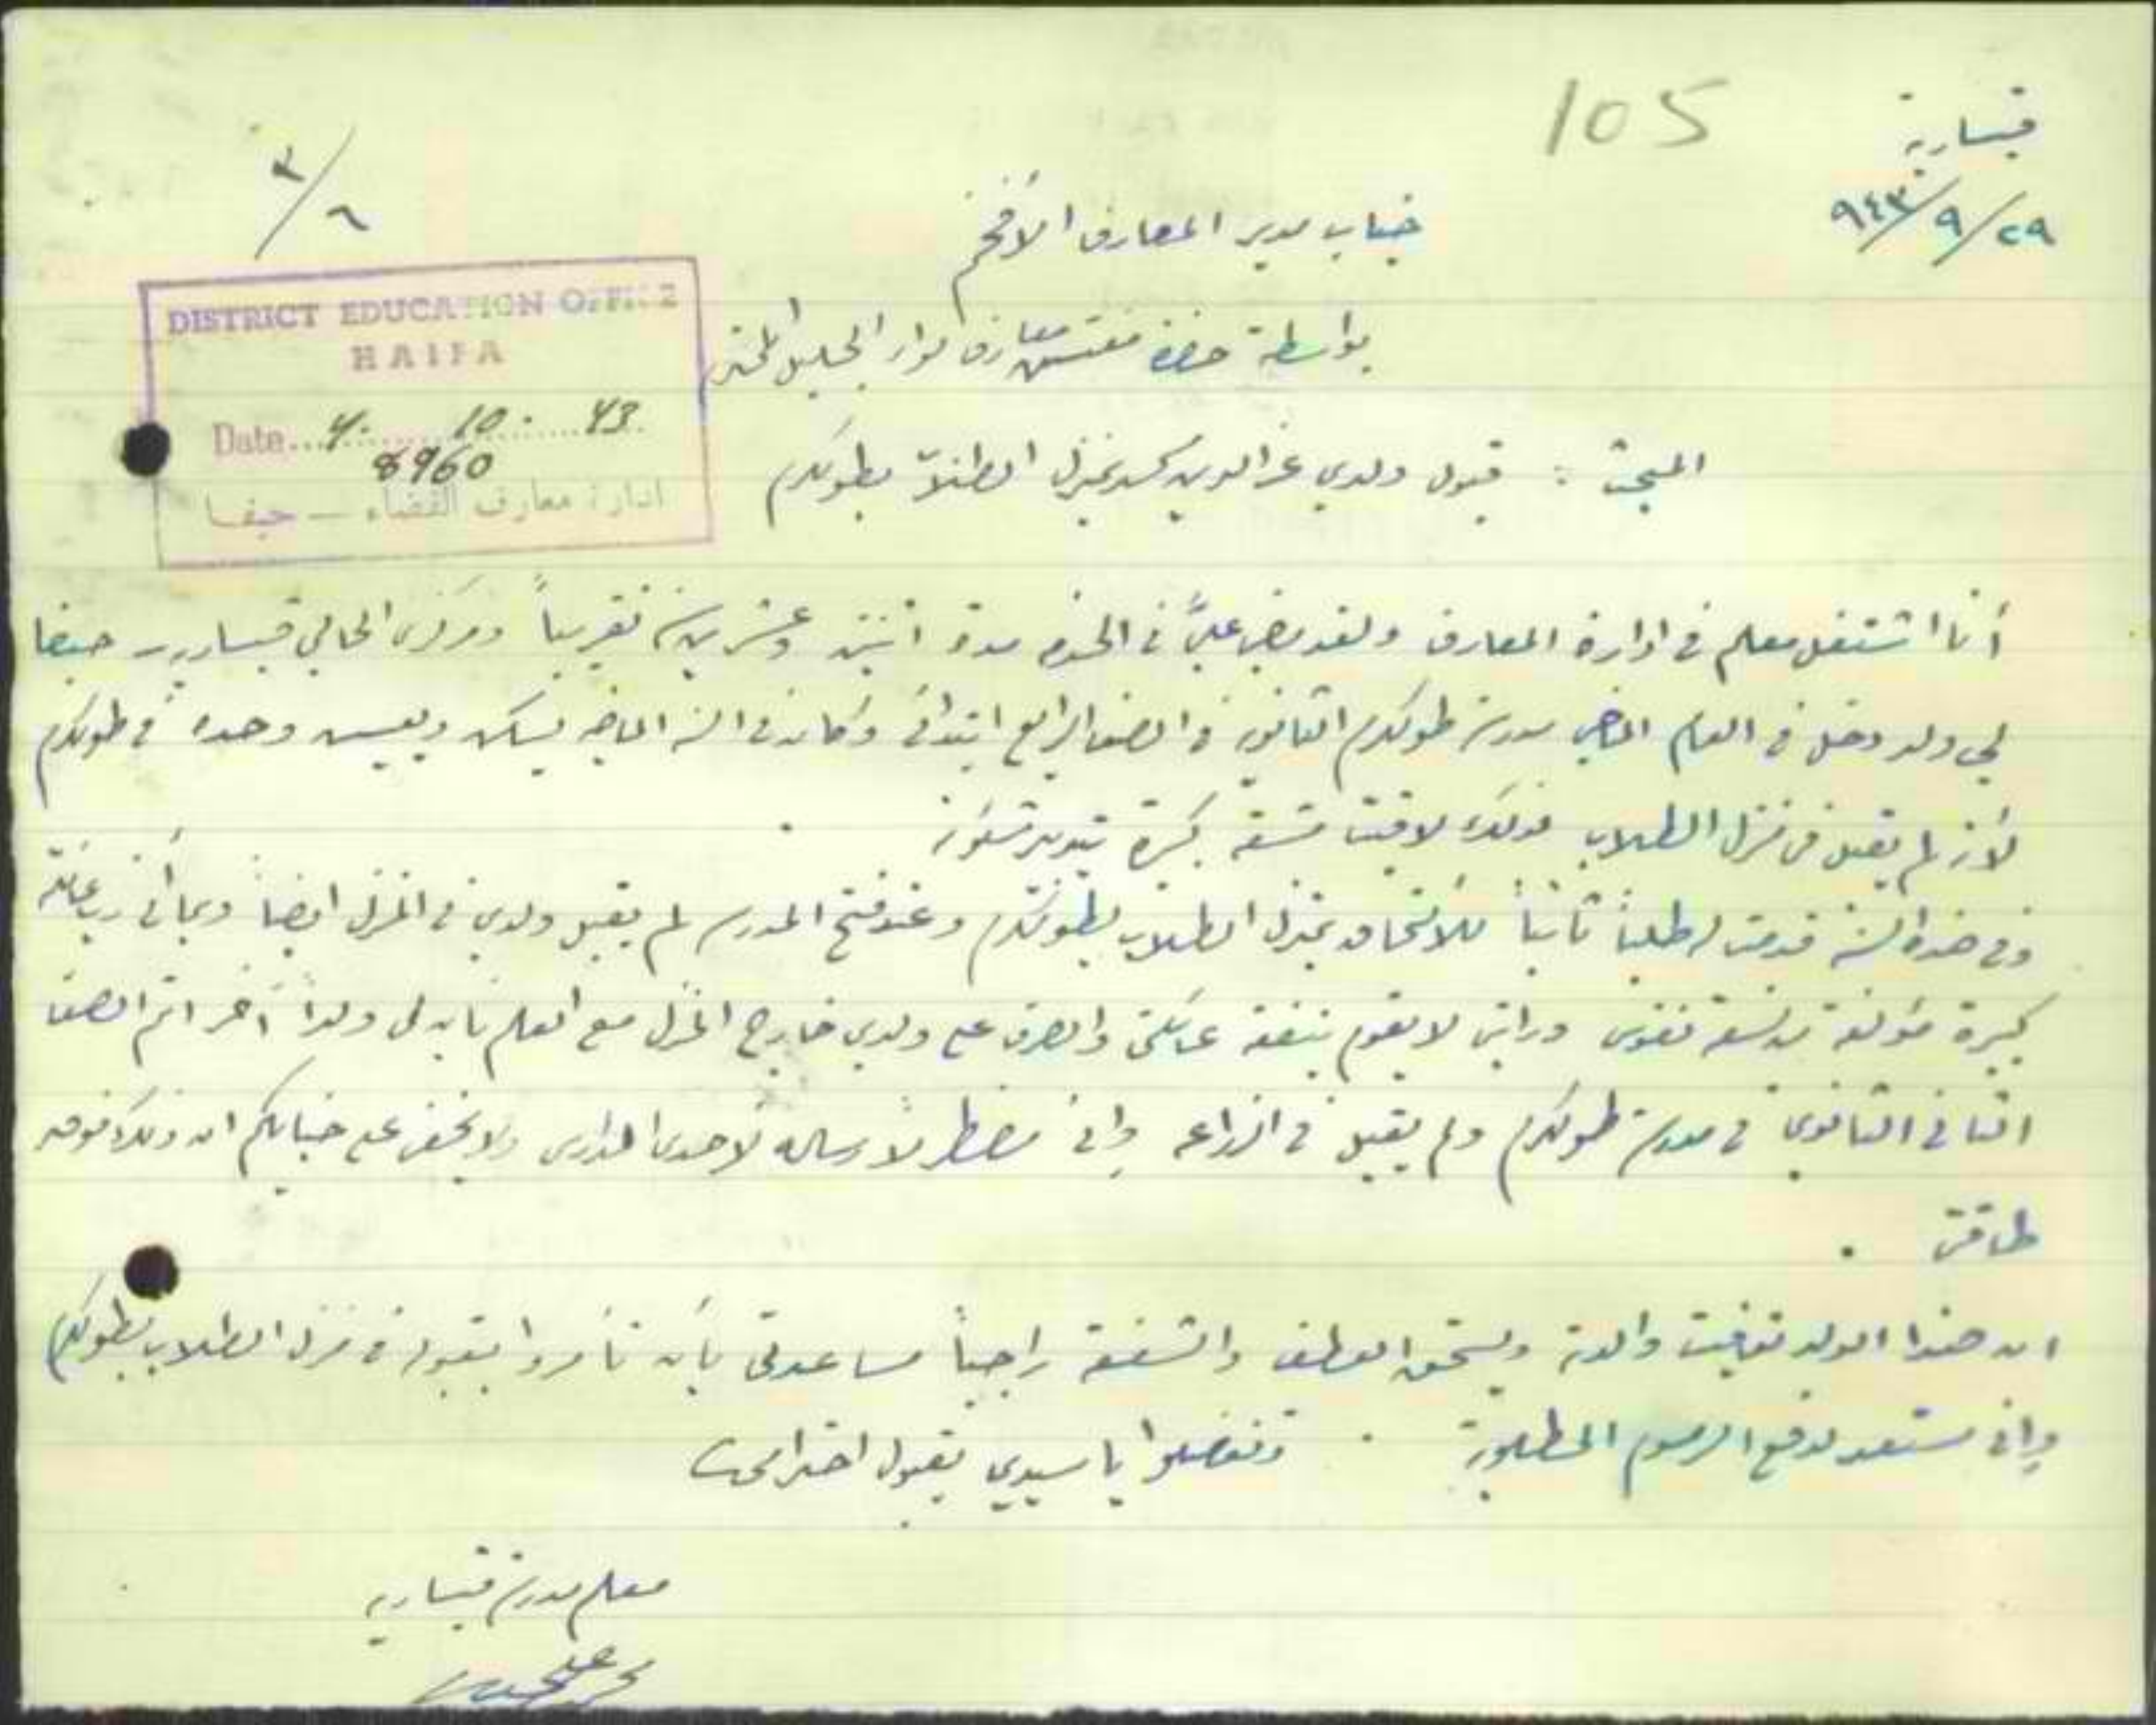 105
قيسارية
٢٩/٩/٩٤٣
٣/٦
جناب مدير المعارف الأفخم
بواسطة حضرة مفتش معارف لواء الجليل المحترم
DISTRICT EDUCATION OFFICE
HAIFA
Date 4. 10. 43
8960
ادارة معارف القضاء — حيفا
المبحث : قبول ولدي عز الدين بمنزل الطلاب بطولكرم
أنا اشتغل معلم في ادارة المعارف ولقد مضى عليَّ في الخدمة مدة اثنين وعشرين سنة تقريباً ومركزي الحالي قيسارية حيفا
لي ولد دخل في العام الماضي مدرسة طولكرم الثانوية في الصف الرابع ابتدائي وكان في السنة الماضية يسكن ويعيش وحده في طولكرم
لأنه لم يقبل في منزل الطلاب ولذلك لاقيت مشقة كبيرة بتدبير شئونه .
وفي هذه السنة قدمت له طلباً ثانياً للالتحاق بمنزل الطلاب بطولكرم وعند فتح المدرسة لم يقبل ولدي في المنزل ايضاً وبما أني رب عائلة
كبيرة مؤلفة من تسعة نفوس وراتبي لا يقوم بنفقة عائلتي والصرف على ولدي خارج المنزل مع العلم بأن لي ولداً آخر اتم الصف
الثاني الثانوي في مدرسة طولكرم ولم يقبل في الزراعة وإني مضطر لارساله لأحدى المدارس ولا يخفى على جنابكم ان ذلك فوق
طاقتي .
ان هذا الولد توفيت والدته ويستحق العطف والشفقة راجياً مساعدتي بأن تأمروا بقبوله في منزل الطلاب بطولكرم
وإني مستعد لدفع الرسوم المطلوبة . وتفضلوا يا سيدي بقبول احترامي
معلم مدرسة قيسارية